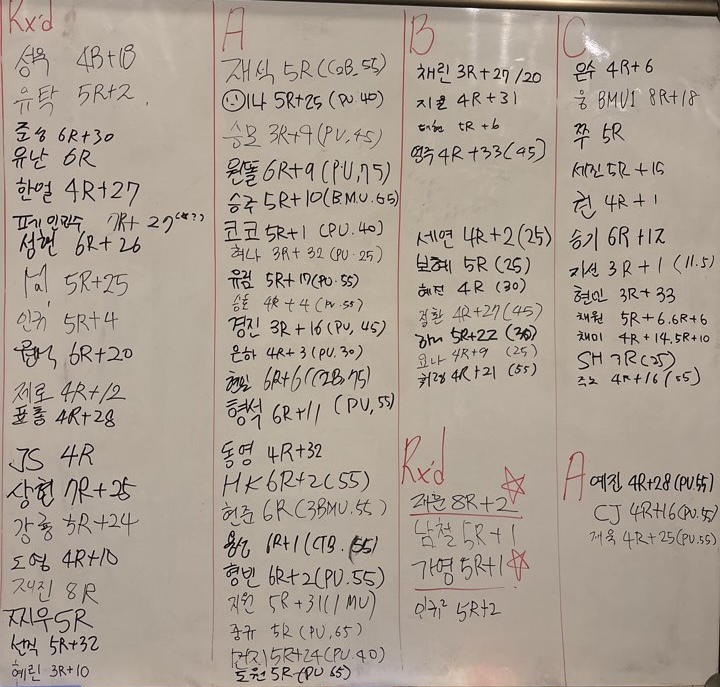 Rx'd
성욱 4R+18
유탁 5R+2
준성 6R+30
유난 6R
한얼 4R+27
7R+27
성현 6R+26
5R+25
인귀 5R+4
6R+20
제로 4R+12
표홍 4R+28
JS 4R
상현 7R+25
강홍 5R+24
도영 4R+10
재진 8R
찌우 5R
선직 5R+32
혜린 3R+10
A
재석 5R (C2B.55)
이나 5R+25 (PU.40)
승모 3R+9 (PU.45)
원똘 6R+9 (PU.75)
승주 5R+10 (B.M.U.65)
코코 5R+1 (PU.40)
허나 3R+32 (PU.25)
유림 5R+17 (PU.55)
승훈 4R+4 (PU.55)
경진 3R+16 (PU, 45)
은하 4R+3 (PU.30)
현일 6R+6 (C2B.75)
형석 6R+11 (PU,55)
동영 4R+32
HK 6R+2 (55)
현준 6R (3BMU.55)
용선 6R+1 (CTB.55)
형빈 6R+2 (PU.55)
지원 5R+31 (1MU)
중규 5R (PU,65)
민지 5R+24 (PU.40)
도원 5R (PU 65)
B
채린 3R+27/20
지윤 4R+31
태현 5R+6
연주 4R+33 (45)
세연 4R+2 (25)
보혜 5R (25)
혜진 4R (30)
정환 4R+27 (45)
5R+22 (30)
요나 4R+9 (25)
희랑 4R+21 (55)
Rx'd
재문 8R+2
남철 5R+1
가영 5R+1
인귀² 5R+2
C
은수 4R+6
웅 BMU1 8R+18
쭈 5R
세진 5R+15
권 4R+1
승기 6R+12
지선 3R+1 (11.5)
현민 3R+33
채원 5R+6.6R+6
채미 4R+14.5R+10
SH 7R (25)
주노 4R+16 (55)
A
예진 4R+28 (PU.55)
CJ 4R+16 (PU.55)
재욱 4R+25 (PU.55)